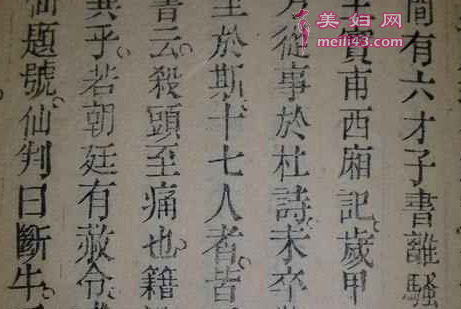 間有六才子書離騷
實甫西廂記歲甲
從事於杜詩未卒
至於斯十七人者皆
書云殺頭至痛也籍
其乎若朝廷有赦令
仙題號仙判曰斷牛
美妇网
meili43.com